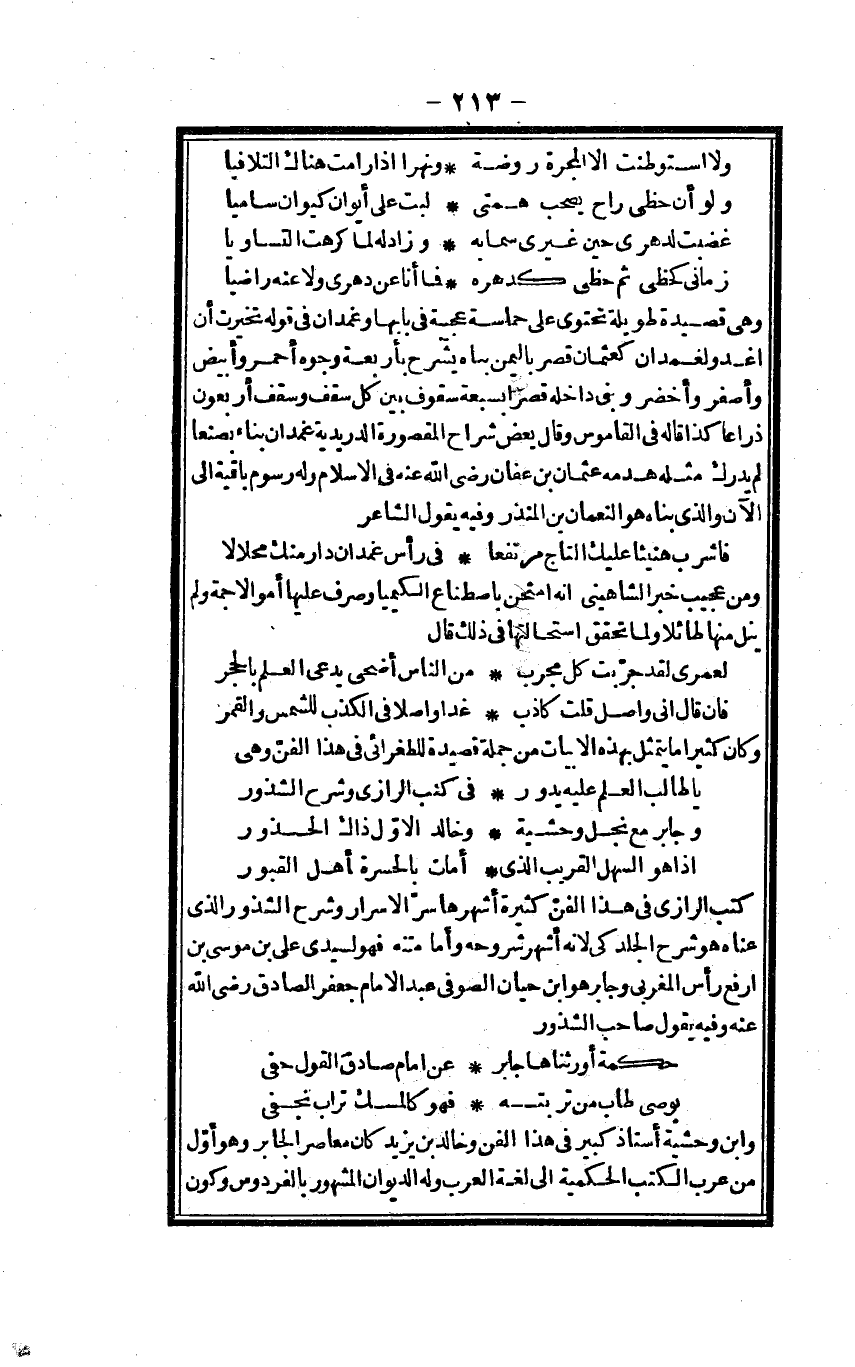 - ٢١٣ -
ولا استوطنت الا المجرة روضة * ونهرا اذا رامت هناك التلاقيا
ولو أن حظى راح يصحب همتى * لبت على أيوان كيوان ساميا
غضبت لدهرى حين غيرى سمابه * وزادله لما كرهت التساويا
زمانى كحظى ثم حظى كدهره * فما أنا عن دهرى ولا عنه راضيا
وهى قصيدة طويلة تحتوى على حماسة عجيبة فى بابها وغمدان فى قوله تخيرت أن
اغدو لغمدان كعثمان قصر باليمن بناه يشرح بأربعة وجوه أحمر وأبيض
وأصفر وأخضر وبنى داخله قصرا بسبعة سقوف بين كل سقف وسقف أربعون
ذراعا كذا قاله فى القاموس وقال بعض شراح المقصورة الدريدية غمدان بناء بصنعا
لم يدرك مثله هدمه عثمان بن عفان رضى الله عنه فى الاسلام وله رسوم باقية الى
الآن والذى بناه هو النعمان بن المنذر وفيه يقول الشاعر
فاشرب هنيئا عليك التاج مرتفعا * فى رأس غمدان دار منك محلالا
ومن عجيب خبر الشاهينى انه امتحن باصطناع الكيميا وصرف عليها أموالا جمة ولم
ينل منها طائلا ولما تحقق استحالتها فى ذلك قال
لعمرى لقد جرّبت كل مجرب * من الناس أضحى يدعى العلم بالحجر
فان قال انى واصل قلت كاذب * غدا واصلا فى الكذب للشمس والقمر
وكان كثيرا ما يتمثل بهذه الابيات من جملة قصيدة للطغرائى فى هذا الفنّ وهى
يا طالب العلم عليه يدور * فى كتب الرازى وشرح الشذور
وجابر مع نجل وحشية * وخالد الاوّل ذاك الحذور
اذا هو السهل القريب الذى * أمات بالحسرة أهل القبور
كتب الرازى فى هذا الفنّ كثيرة أشهرها سرّ الاسرار وشرح الشذور الذى
عناه هو شرح الجلدكى لانه أشهر شروحه وأما متنه فهو لسيدى على بن موسى بن
ارفع رأس المغربى وجابر هو ابن حيان الصوفى عبد الامام جعفر الصادق رضى الله
عنه وفيه يقول صاحب الشذور
حكمة أورثناها جابر * عن امام صادق القول حفى
يوصى طاب من تربته * فهو كالمسك تراب نجفى
وابن وحشية أستاذ كبير فى هذا الفن وخالد بن يزيد كان معاصر الجابر وهو أوّل
من عرب الكتب الحكمية الى لغة العرب وله الديوان المشهور بالفردوس وكون